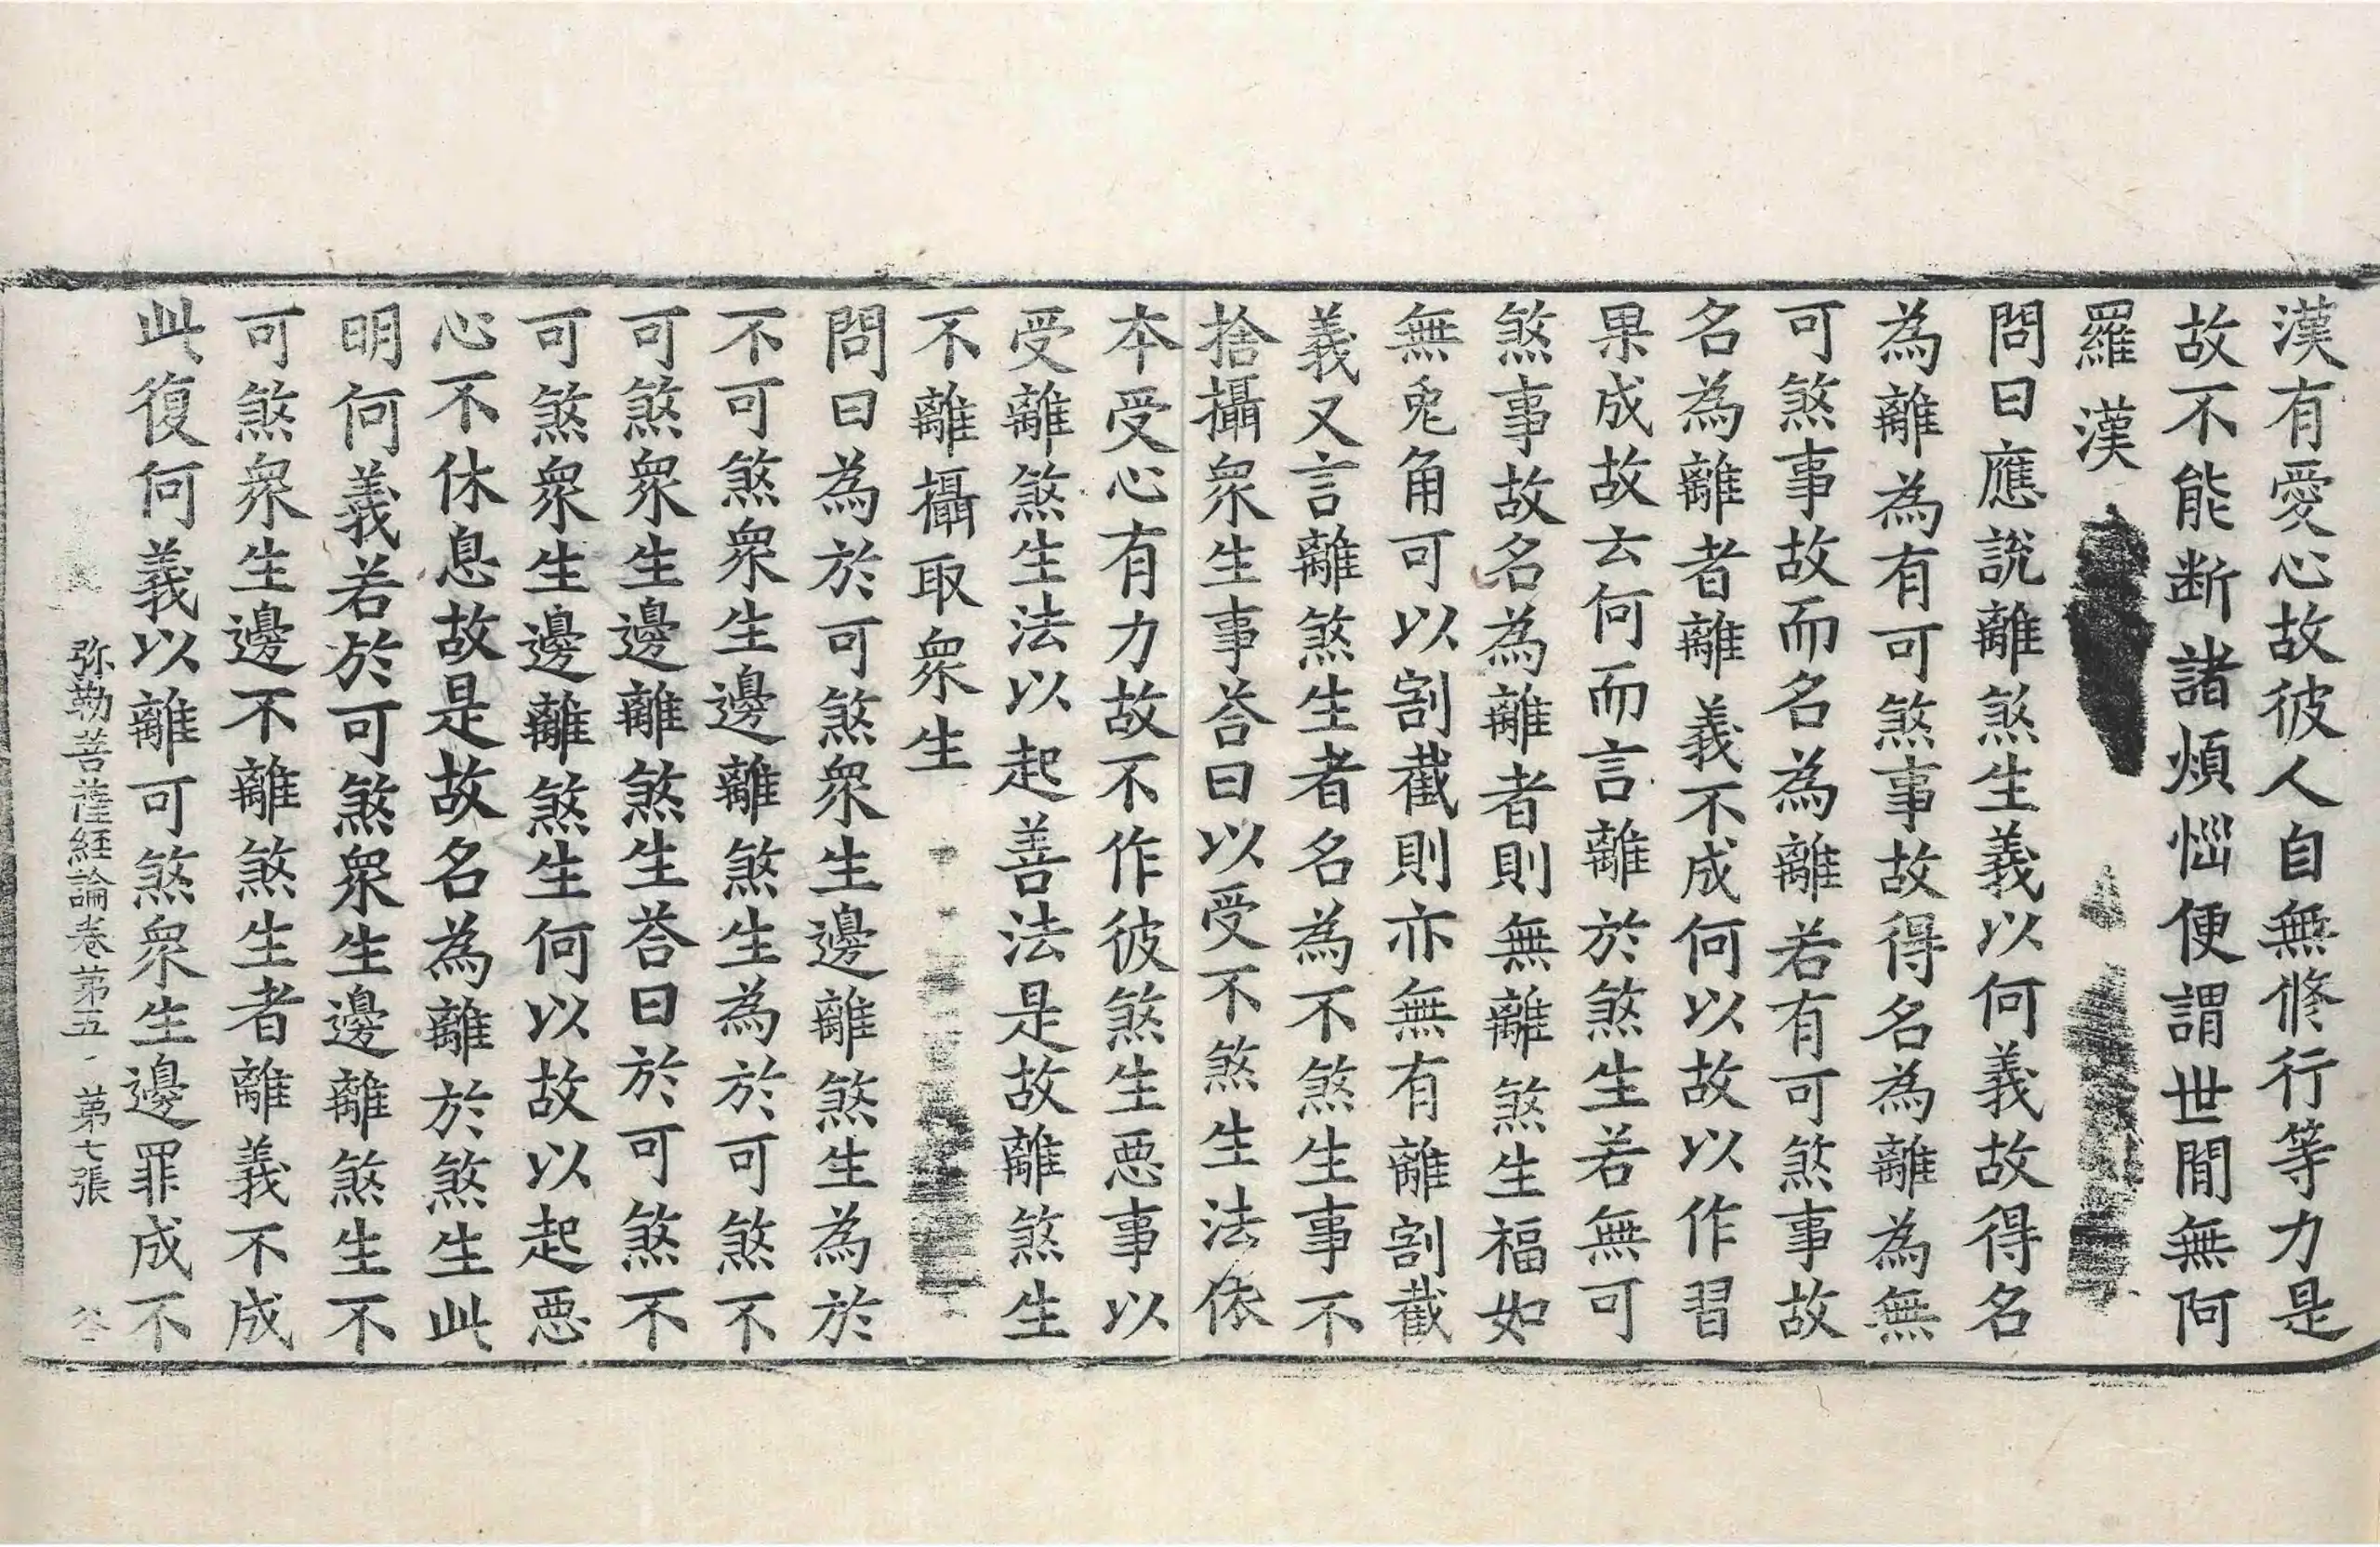 漢有愛心故彼人自無修行等力是
故不能断諸煩惱便謂世閒無阿
羅漢
問曰應說離煞生義以何義故得名
為離為有可煞事故得名為離為無
可煞事故而名為離若有可煞事故
名為離者離義不成何以故以作習
果成故云何而言離於煞生若無可
煞事故名為離者則無離煞生福如
無兎角可以割截則亦無有離割截
義又言離煞生者名為不煞生事不
捨攝衆生事荅曰以受不煞生法依
本受心有力故不作彼煞生惡事以
受離煞生法以起善法是故離煞生
不離攝取衆生
問曰為於可煞衆生邊離煞生為於
不可煞衆生邊離煞生為於可煞不
可煞衆生邊離煞生荅曰於可煞不
可煞衆生邊離煞生何以故以起惡
心不休息故是故名為離於煞生此
明何義若於可煞衆生邊離煞生不
可煞衆生邊不離煞生者離義不成
此復何義以離可煞衆生邊罪成不
弥勒菩薩経論卷苐五 苐七張